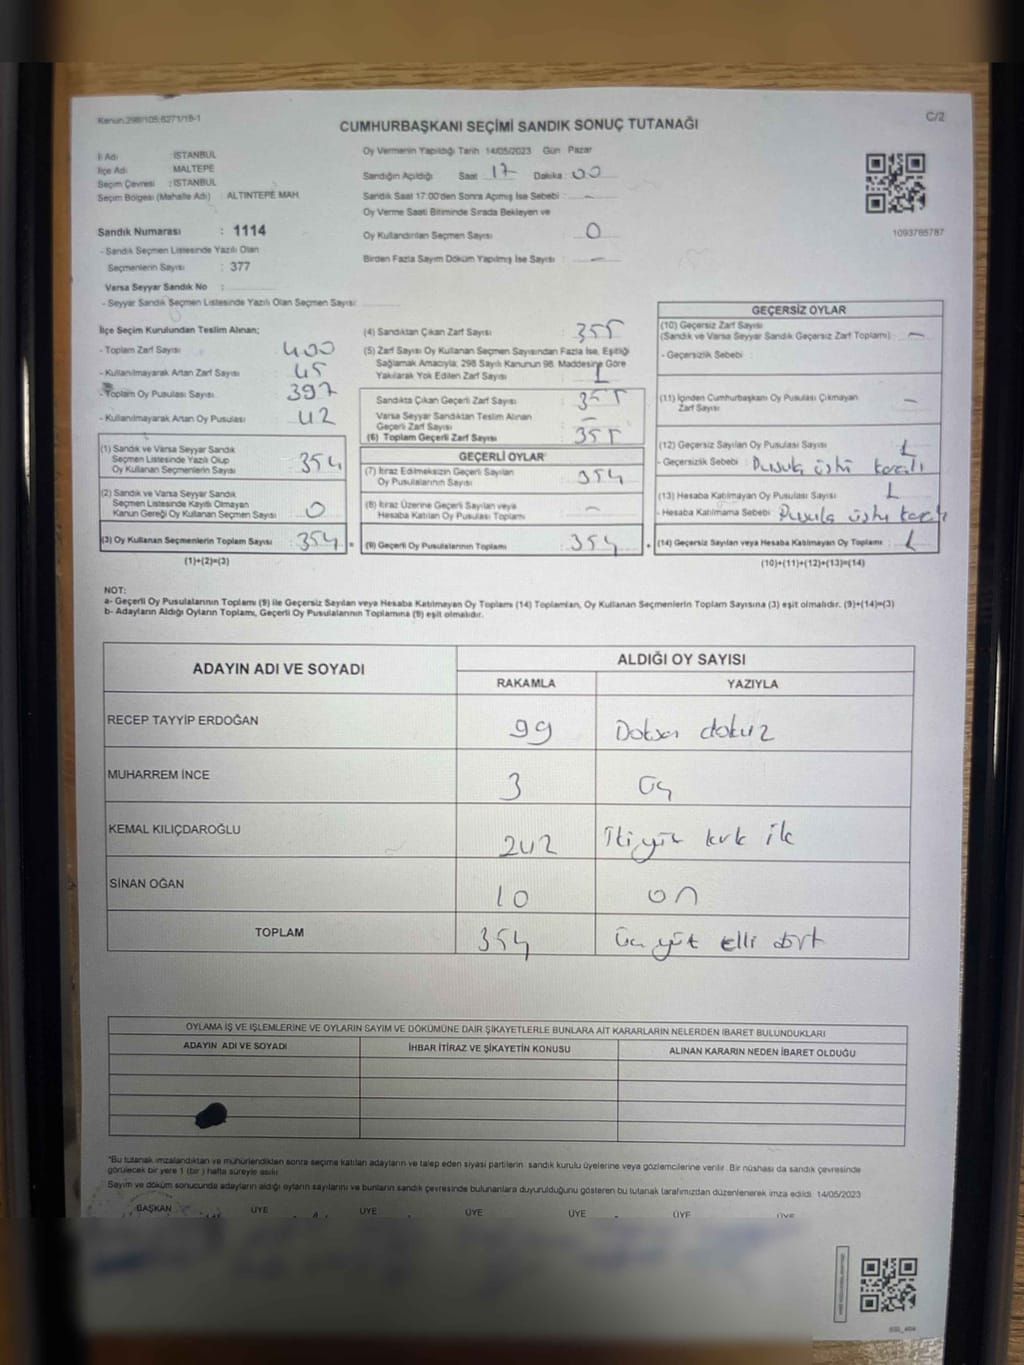 Kanun:298/105;6271/18-1
C/2
CUMHURBAŞKANI SEÇİMİ SANDIK SONUÇ TUTANAĞI
İl Adı : İSTANBUL
İlçe Adı : MALTEPE
Seçim Çevresi : İSTANBUL
Seçim Bölgesi (Mahalle Adı) : ALTINTEPE MAH.
Sandık Numarası : 1114
- Sandık Seçmen Listesinde Yazılı Olan
Seçmenlerin Sayısı : 377
Varsa Seyyar Sandık No :
- Seyyar Sandık Seçmen Listesinde Yazılı Olan Seçmen Sayısı:
Oy Vermenin Yapıldığı Tarih 14/05/2023 Gün Pazar
Sandığın Açıldığı Saat 17 Dakika : 00
Sandık Saat 17:00'den Sonra Açımış İse Sebebi : -
Oy Verme Saati Bitiminde Sırada Bekleyen ve
Oy Kullandırılan Seçmen Sayısı : 0
Birden Fazla Sayım Döküm Yapılmış İse Sayısı : -
1093785787
İlçe Seçim Kurulundan Teslim Alınan;
- Toplam Zarf Sayısı : 400
- Kullanılmayarak Artan Zarf Sayısı : 45
- Toplam Oy Pusulası Sayısı : 397
- Kullanılmayarak Artan Oy Pusulası : 42
(1) Sandık ve Varsa Seyyar Sandık
Seçmen Listesinde Yazılı Olup
Oy Kullanan Seçmenlerin Sayısı : 354
(2) Sandık ve Varsa Seyyar Sandık
Seçmen Listesinde Kayıtlı Olmayan
Kanun Gereği Oy Kullanan Seçmen Sayısı : 0
(3) Oy Kullanan Seçmenlerin Toplam Sayısı : 354 =
(1)+(2)=(3)
(4) Sandıktan Çıkan Zarf Sayısı : 355
(5) Zarf Sayısı Oy Kullanan Seçmen Sayısından Fazla İse, Eşitliği
Sağlamak Amacıyla; 298 Sayılı Kanunun 98. Maddesine Göre
Yakılarak Yok Edilen Zarf Sayısı : 1
Sandıkta Çıkan Geçerli Zarf Sayısı : 355
Varsa Seyyar Sandıktan Teslim Alınan
Geçerli Zarf Sayısı : -
(6) Toplam Geçerli Zarf Sayısı : 355
GEÇERLİ OYLAR
(7) İtiraz Edilmeksizin Geçerli Sayılan
Oy Pusulalarının Sayısı : 354
(8) İtiraz Üzerine Geçerli Sayılan veya
Hesaba Katılan Oy Pusulası Toplamı : -
(9) Geçerli Oy Pusulalarının Toplamı : 354 +
GEÇERSİZ OYLAR
(10) Geçersiz Zarf Sayısı
(Sandık ve Varsa Seyyar Sandık Geçersiz Zarf Toplamı) : -
- Geçersizlik Sebebi :
(11) İçinden Cumhurbaşkanı Oy Pusulası Çıkmayan
Zarf Sayısı : -
(12) Geçersiz Sayılan Oy Pusulası Sayısı : 1
- Geçersizlik Sebebi : Pusula üstü karalı
(13) Hesaba Katılmayan Oy Pusulası Sayısı : 1
- Hesaba Katılmama Sebebi : Pusula üstü karalı
(14) Geçersiz Sayılan veya Hesaba Katılmayan Oy Toplamı : 1
(10)+(11)+(12)+(13)=(14)
NOT:
a- Geçerli Oy Pusulalarının Toplamı (9) ile Geçersiz Sayılan veya Hesaba Katılmayan Oy Toplamı (14) Toplamları, Oy Kullanan Seçmenlerin Toplam Sayısına (3) eşit olmalıdır. (9)+(14)=(3)
b- Adayların Aldığı Oyların Toplamı, Geçerli Oy Pusulalarının Toplamına (9) eşit olmalıdır.
ADAYIN ADI VE SOYADI
ALDIĞI OY SAYISI
RAKAMLA YAZIYLA
RECEP TAYYİP ERDOĞAN 99 Doksan dokuz
MUHARREM İNCE 3 Üç
KEMAL KILIÇDAROĞLU 242 İkiyüz kırk iki
SİNAN OĞAN 10 on
TOPLAM 354 Üç yüz elli dört
OYLAMA İŞ VE İŞLEMLERİNE VE OYLARIN SAYIM VE DÖKÜMÜNE DAİR ŞİKAYETLERLE BUNLARA AİT KARARLARIN NELERDEN İBARET BULUNDUKLARI
ADAYIN ADI VE SOYADI İHBAR İTİRAZ VE ŞİKAYETİN KONUSU ALINAN KARARIN NEDEN İBARET OLDUĞU
"Bu tutanak imzalandıktan ve mühürlendikten sonra seçime katılan adayların ve talep eden siyasi partilerin sandık kurulu üyelerine veya gözlemcilerine verilir. Bir nüshası da sandık çevresinde
görülecek bir yere 1 (bir ) hafta süreyle asılır.
Sayım ve döküm sonucunda adayların aldığı oyların sayılarını ve bunların sandık çevresinde bulunanlara duyurulduğunu gösteren bu tutanak tarafımızdan düzenlenerek imza edildi. 14/05/2023
BAŞKAN ÜYE ÜYE ÜYE ÜYE ÜYE ÜYE